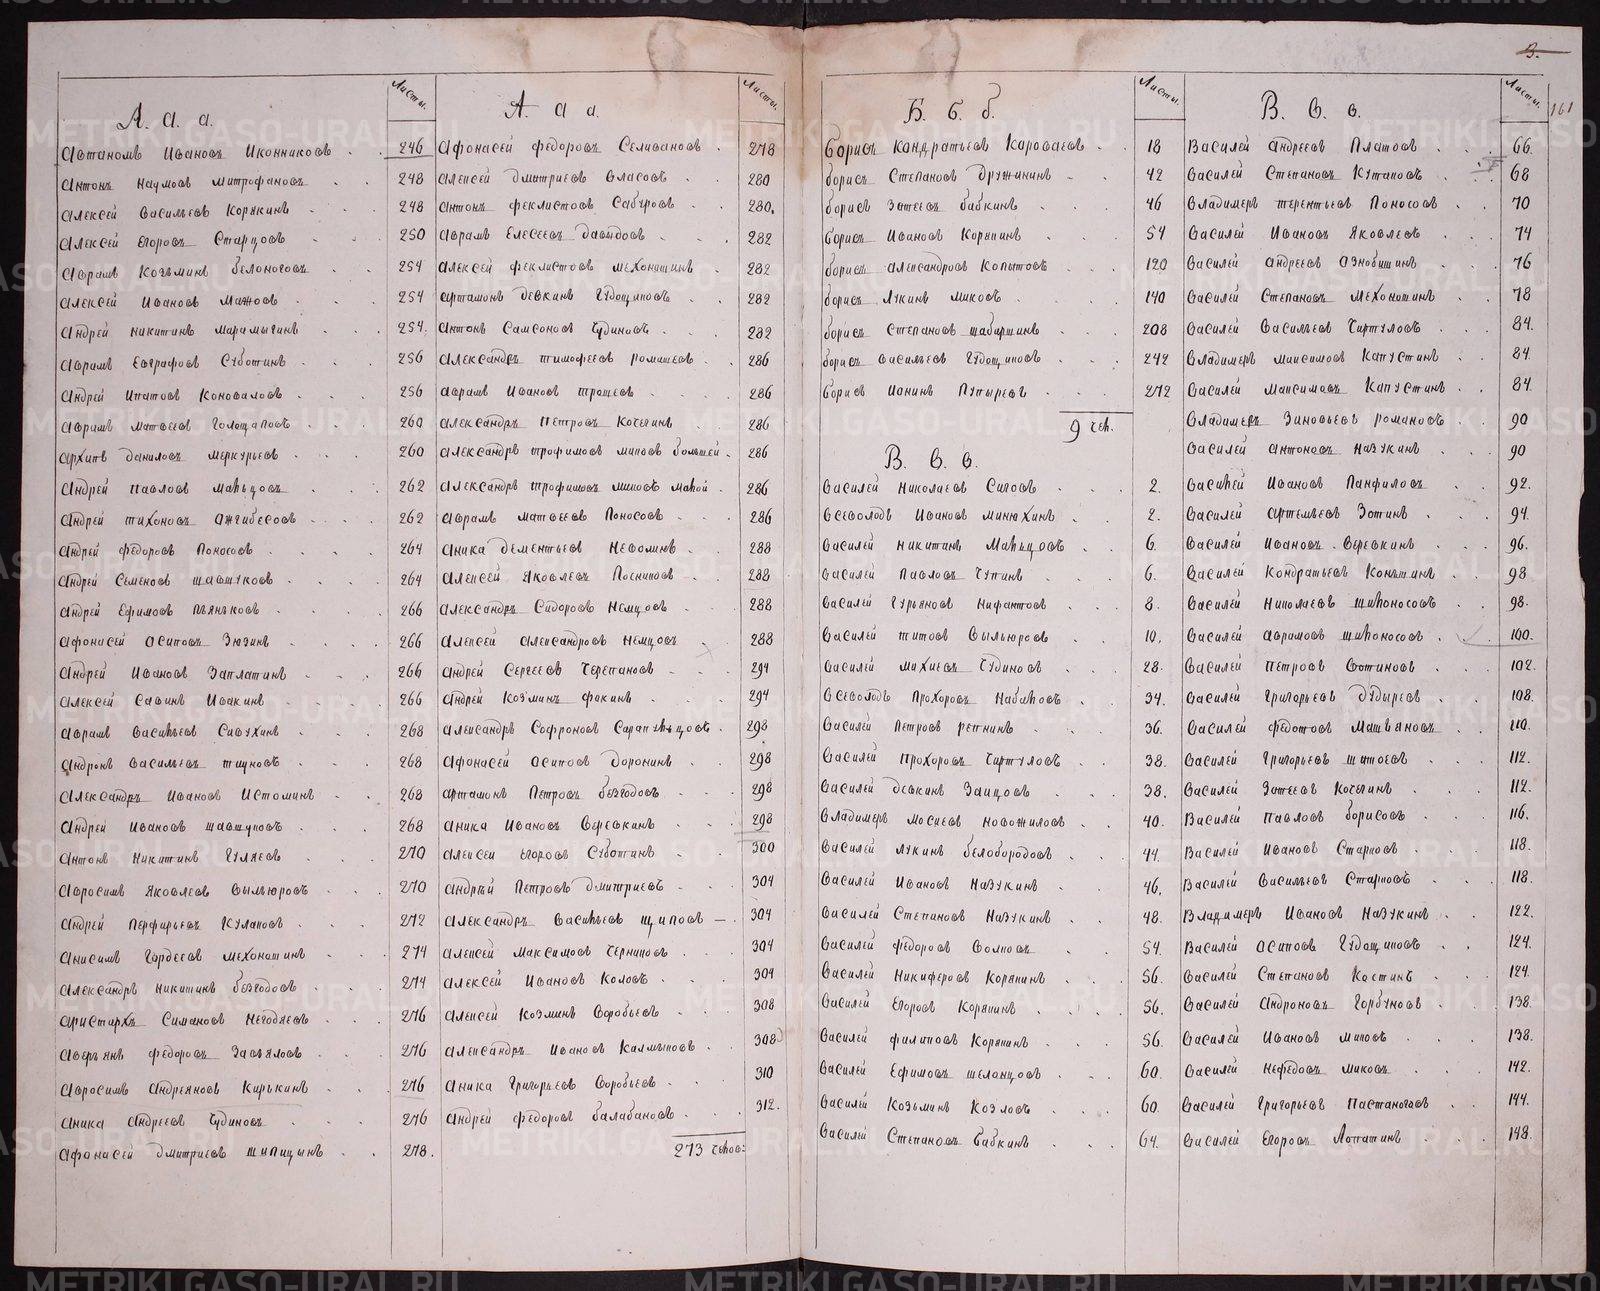 А. а. а.
Листы.
Автаномъ Ивановъ Иконниковъ 246
Антонъ Наумовъ Митрофановъ 248
Алексей Васильевъ Корякинъ 248
Алексей Егоровъ Старцовъ 250
Аврамъ Козьминъ Белоноговъ 254
Алексей Ивановъ Мажовъ 254
Андрей Никитинъ Марамыгинъ 254.
Аврамъ Евграфовъ Суботинъ 256
Андрей Ипатовъ Коноваловъ 256
Аврамъ Матвеевъ Голощаповъ 260
Архипъ Даниловъ Меркурьевъ 260
Андрей Павловъ Мальцовъ 262
Андрей Тихоновъ Ожгибесовъ 262
Андрей Федоровъ Поносовъ 264
Андрей Семеновъ Шавшуковъ 264
Андрей Ефимовъ Пьянковъ 266
Афонасей Осиповъ Зюзинъ 266
Андрей Ивановъ Заплатинъ 266
Алексей Савинъ Ивакинъ 266
Аврамъ Васильевъ Сивухинъ 268
Андронъ Васильевъ Тиуновъ 268
Александръ Ивановъ Истоминъ 268
Андрей Ивановъ Шавшуковъ 268
Антонъ Никитинъ Гуляевъ 270
Авросимъ Яковлевъ Вылыюровъ 270
Андрей Перфирьевъ Кулаковъ 272
Анисимъ Гордеевъ Мехоношинъ 274
Александръ Никитинъ Безгодовъ 274
Аристархъ Симановъ Негодяевъ 276
Аверьянъ Федоровъ Завьяловъ 276
Авросимъ Андреяновъ Кирькинъ 276
Аника Андреевъ Чудиновъ 276
Афонасей Дмитриевъ Шипицынъ 278.
А а а.
Листы.
Афонасей Федоровъ Селивановъ 278
Алексей Дмитриевъ Власовъ 280
Антонъ Феклистовъ Сабуровъ 280.
Аврамъ Елесеевъ Давыдовъ 282
Алексей Феклистовъ Мехоношинъ 282
Арташонъ Девкинъ Гудощиковъ 282
Антонъ Самсоновъ Чудиновъ 282
Александръ Тимофеевъ Ромашевъ 286
Аврамъ Ивановъ Трошевъ 286
Александръ Петровъ Кочегинъ 286
Александръ Трофимовъ Миковъ большей 286
Александръ Трофимовъ Миковъ малой 286
Аврамъ Матвеевъ Поносовъ 286
Аника Дементьевъ Неволинъ 288
Алексей Яковлевъ Посниковъ 288
Александръ Сидоровъ Немцовъ 288
Алексей Александровъ Немцовъ 288
Андрей Сергеевъ Черепановъ 294
Андрей Козминъ Фокинъ 294
Александръ Софроновъ Сарапульцовъ 298
Афонасей Осиповъ Доронинъ 298
Арташонъ Петровъ Безгодовъ 298
Аника Ивановъ Веревкинъ 298
Алексей Егоровъ Суботинъ 300
Андрей Петровъ Дмитриевъ 304
Александръ Васильевъ Щиповъ 304
Алексей Максимовъ Черниковъ 304
Алексей Ивановъ Коловъ 304
Алексей Козминъ Воробьевъ 308
Александръ Ивановъ Калмыковъ 308
Аника Григорьевъ Воробьевъ 310
Андрей Федоровъ Балабановъ 312.
273 челов:
Б. б. б.
Листы.
Борисъ Кондратьевъ Короваевъ 18
Борисъ Степановъ Дружининъ 42
Борисъ Зотеевъ Бабкинъ 46
Борисъ Ивановъ Корякинъ 54
Борисъ Александровъ Копытовъ 120
Борисъ Лукинъ Миковъ 140
Борисъ Степановъ Шабаршинъ 208
Борисъ Васильевъ Гудощиковъ 242
Борисъ Ионинъ Пупыревъ 272
9 чел.
В. в. в.
Василей Николаевъ Сиговъ 2.
Всеволодъ Ивановъ Минюхинъ 2.
Василей Никитинъ Мальцовъ 6.
Василей Павловъ Чупинъ 6.
Василей Гурьяновъ Нифантовъ 8.
Василей Титовъ Вылыюровъ 10.
Василей Михиевъ Чудиновъ 28.
Всеволодъ Прохоровъ Набиловъ 34.
Василей Петровъ Репнинъ 36.
Василей Прохоровъ Чиртуловъ 38.
Василей Девкинъ Заицовъ 38.
Владимеръ Мосиевъ Новожиловъ 40.
Василей Лукинъ Белобородовъ 44.
Василей Ивановъ Назукинъ 46.
Василей Степановъ Назукинъ 48.
Василей Федоровъ Волковъ 54.
Василей Никиферовъ Корякинъ 56.
Василей Егоровъ Корякинъ 56.
Василей Филиповъ Корякинъ 56.
Василей Ефимовъ Шелонцовъ 60.
Василей Козьминъ Козловъ 60.
Василей Степановъ Бабкинъ 64.
3.
161
В. в. в.
Листы.
Василей Андреевъ Платовъ 66.
Василей Степановъ Кутаковъ 68
Владимеръ Терентьевъ Поносовъ 70
Василей Ивановъ Яковлевъ 74
Василей Андреевъ Ознобишинъ 76
Василей Степановъ Мехоношинъ 78
Василей Васильевъ Чиртуловъ 84.
Владимеръ Максимовъ Капустинъ 84.
Василей Максимовъ Капустинъ 84.
Владимеръ Зиновьевъ Романовъ 90
Василей Антоновъ Назукинъ 90
Василей Ивановъ Панфиловъ 92.
Василей Артемьевъ Зотинъ 94.
Василей Ивановъ Веревкинъ 96.
Василей Кондратьевъ Коньшинъ 98
Василей Николаевъ Шилоносовъ 98.
Василей Аврамовъ Шилоносовъ 100.
Василей Петровъ Вотиновъ 102.
Василей Григорьевъ Дудыревъ 108.
Василей Федотовъ Матьяновъ 110.
Василей Григорьевъ Шитоевъ 112.
Василей Зотеевъ Кочегинъ 112.
Василей Павловъ Борисовъ 116.
Василей Ивановъ Старковъ 118.
Василей Васильевъ Старковъ 118.
Владимеръ Ивановъ Назукинъ 122.
Василей Осиповъ Гудощиковъ 124.
Василей Степановъ Костинъ 124.
Василей Андроновъ Горбуновъ 138.
Василей Ивановъ Миковъ 138.
Василей Нефедовъ Миковъ 142.
Василей Григорьевъ Пастаноговъ 144.
Василей Егоровъ Лопатинъ 148.
METRIKI.GASO-URAL.RU